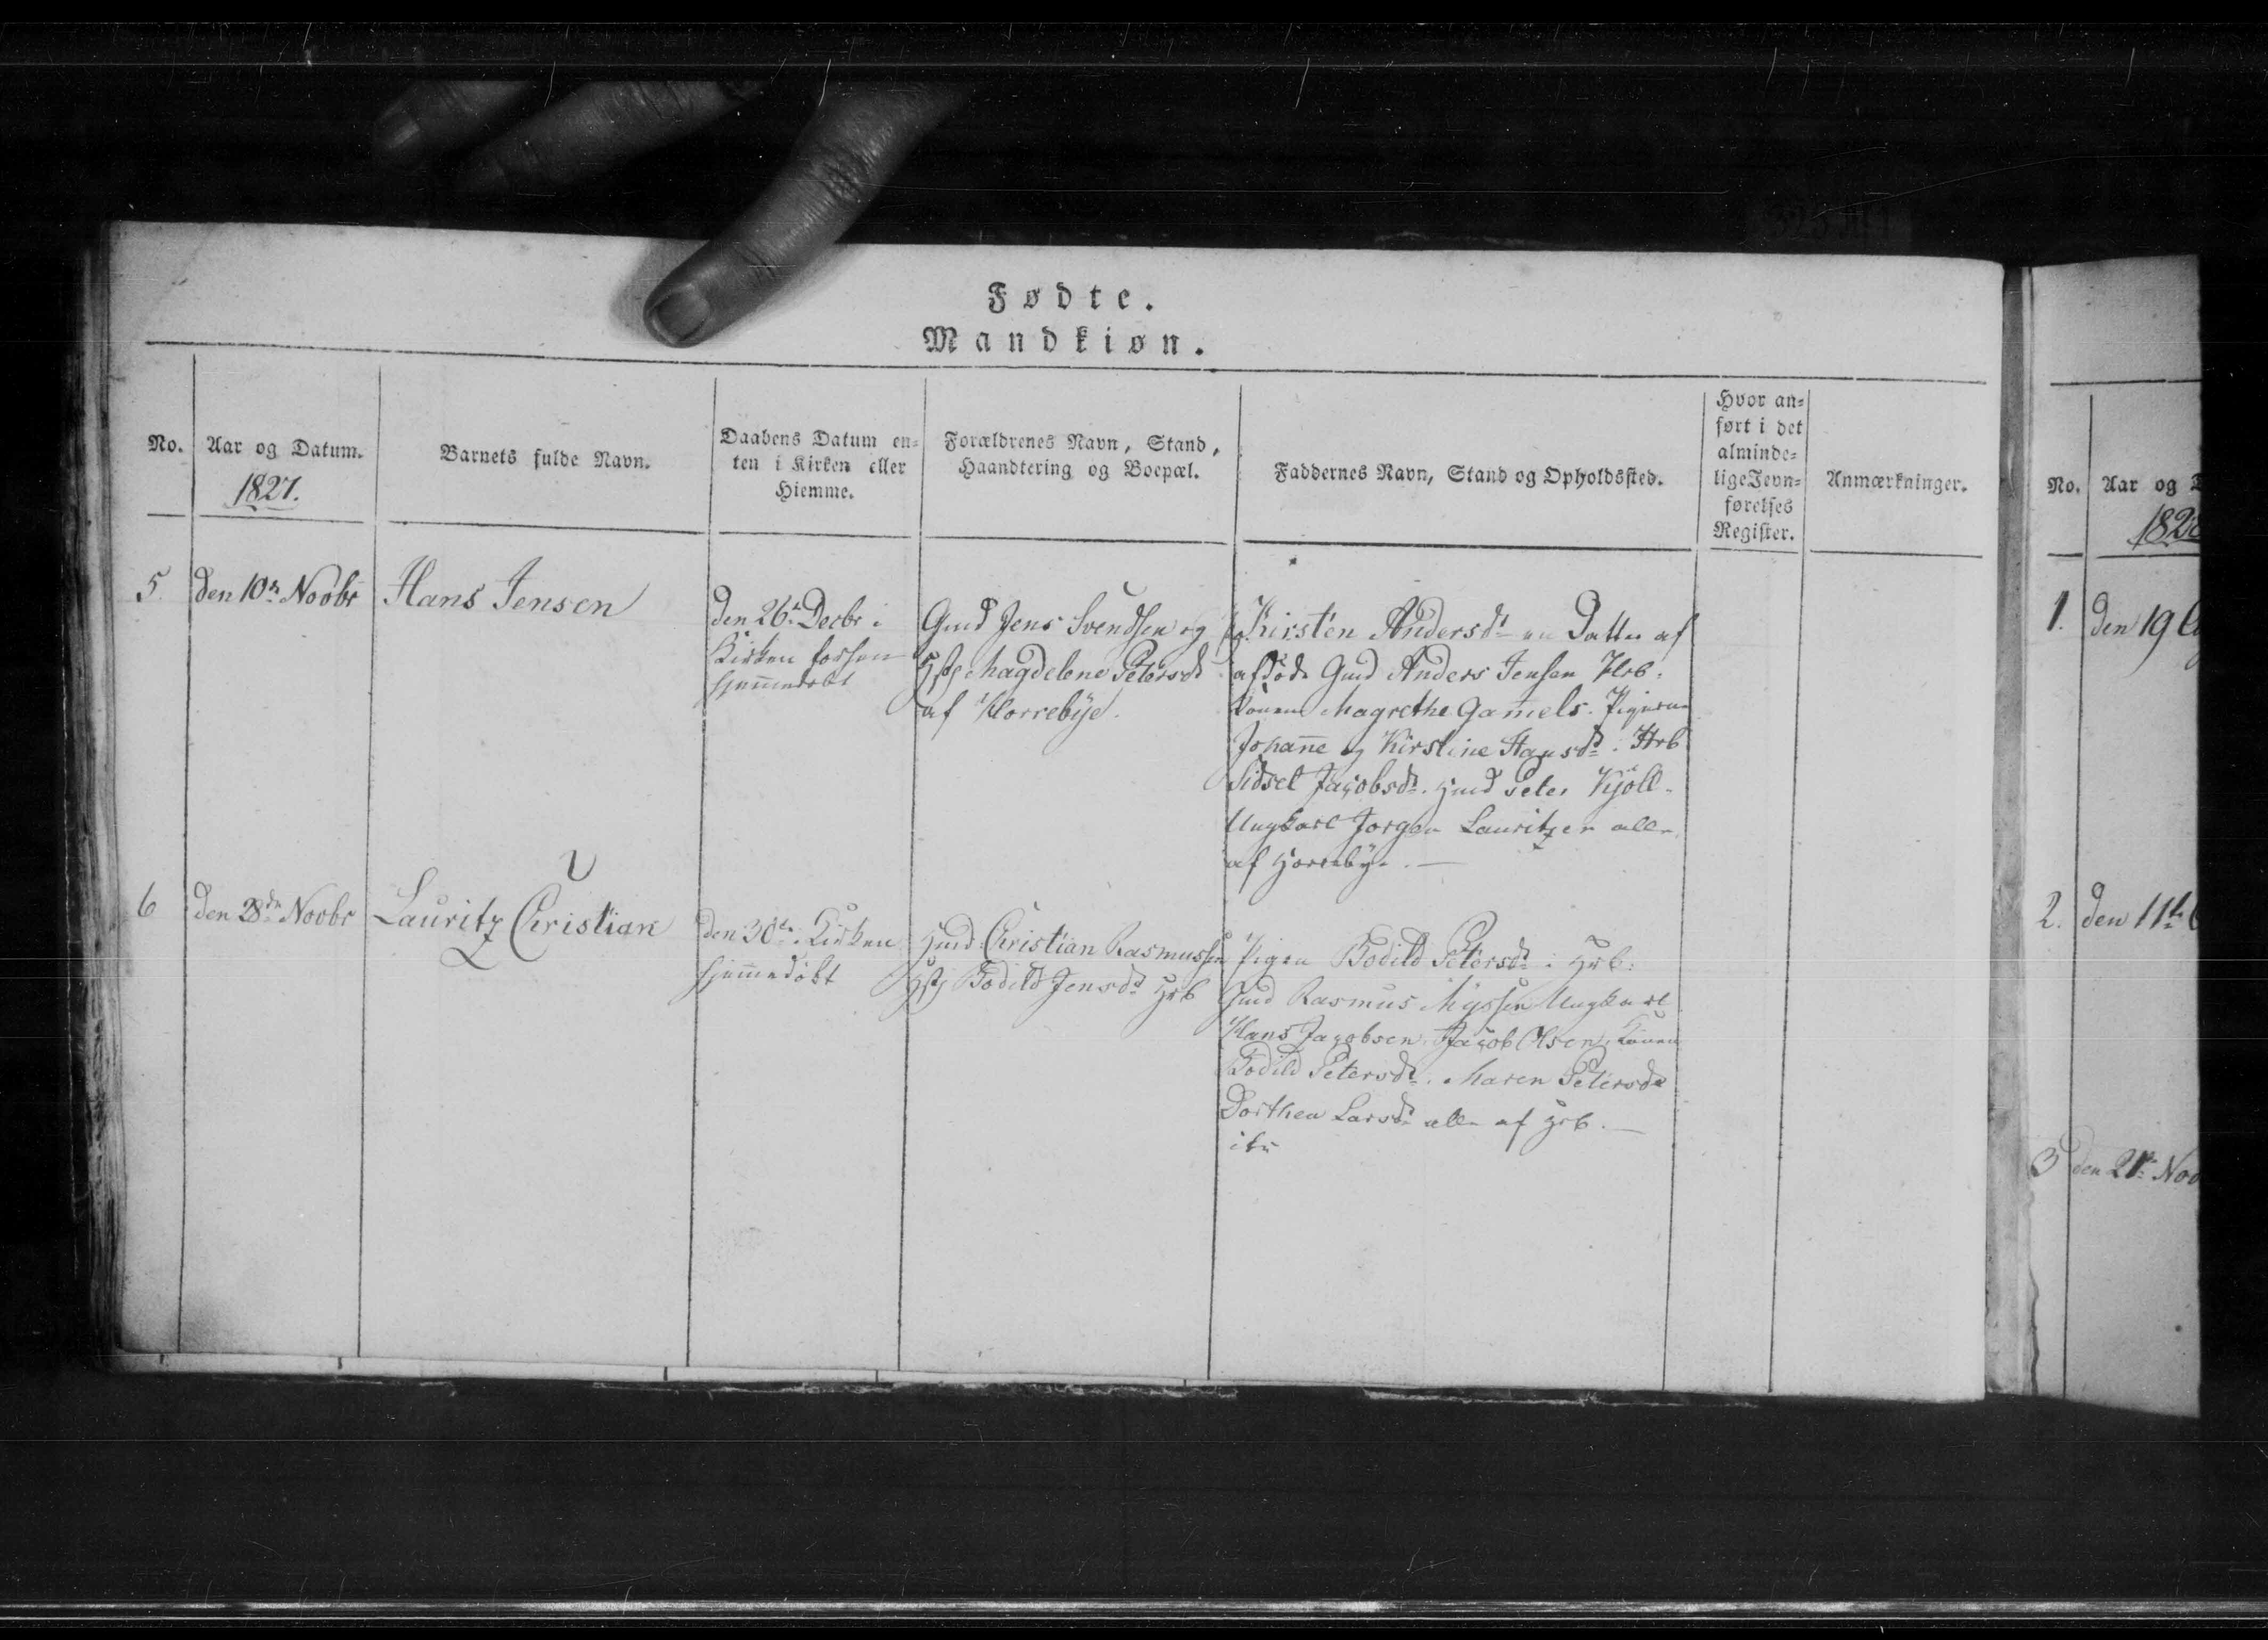 Fødte.
Mandkiøn.
No.
Aar og Datum.
1827.
Barnets fulde Navn.
Daabens Datum en=
ten i Kirken eller
Hiemme.
Forældrenes Navn, Stand,
Haandtering og Boepæl.
Faddernes Navn, Stand og Opholdssted.
Hvor an=
ført i det
alminde=
lige Jevn=
førelses
Register.
Anmærkninger.
5.
den 10de Novbr
Hans Jensen
den 26de Decbr i
Kirken forhen
hjemmedøbt
Gmd Jens Svendsen og
Hst Magdelene Petersd
af Horrebye.
Kirsten Andersdt en Datter af
afdøde Gmd Anders Jensen Hrb.
Konen Magrethe Gamels. Pigerne
Johanne og Kirstine Hansdt i Hrb
Sidsel Jacobsdt. Hmd Peter Kjöll.
Ungkarl Jorgen Lauritzen alle
af Horrebye. —
6
den 28de Novbr
Lauritz Christian
den 30te i Kirken
hjemmedøbt
Hmd Christian Rasmussen
Hst Bodild Jensdt Hrb
Pigen Bodild Petersdt i Hrb:
Gmd Rasmus Ungkarl
Hans Jacobsen, Jacob Olsen, Konen
Bodild Petersdt. Maren Petersdt
Dorthea Larsdt alle af Hrb. —
No.
Aar og
182
1.
den 19
2.
den 11te
3
den 21de Nov